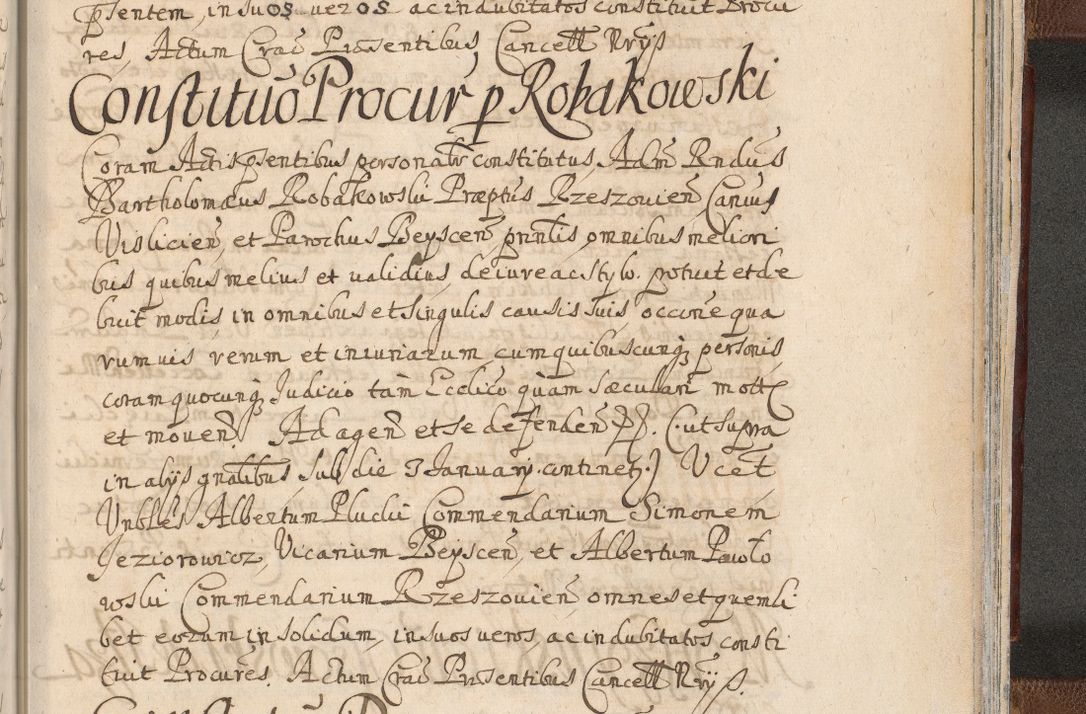 psentem, in suos veros ac indubitatos constituit Procu
res, Actum Crac Presentibus Cancell Nrys
Constituõ Procur p Robakowski
Coram Actis psentibus personalr constitutus, Adm Rndus
Bartholomæus Robakowski Præptus Rzeszovien, Canius
Vislicien, et Parochus Beyscen, pnntis, omnibus meliori
bus quibus melius et validius, de iure ac stylo potuit et de
buit modis, in omnibus et singulis causis suis occone qua
rumvis rerum et iniuriarum cum quibuscunq personis
coram quocunq Judicio tam Ecclico quam sæculari mott
et moven. Ad agen et se defenden PP. (ut supra
in alys gnalibus sub die 3 January continetz) Vcet
Vnbles Albertum Plucki Commendarium Simonem
Jeziorowicz, Vicarium Beyscen, et Albertum Pawlo
wski Commendarium Rzeszovien omnes et quemli
bet eorum in solidum, in suos veros ac indubitatos consti
tuit Procures. Actum Crac Presentibus Cancell Nrys.